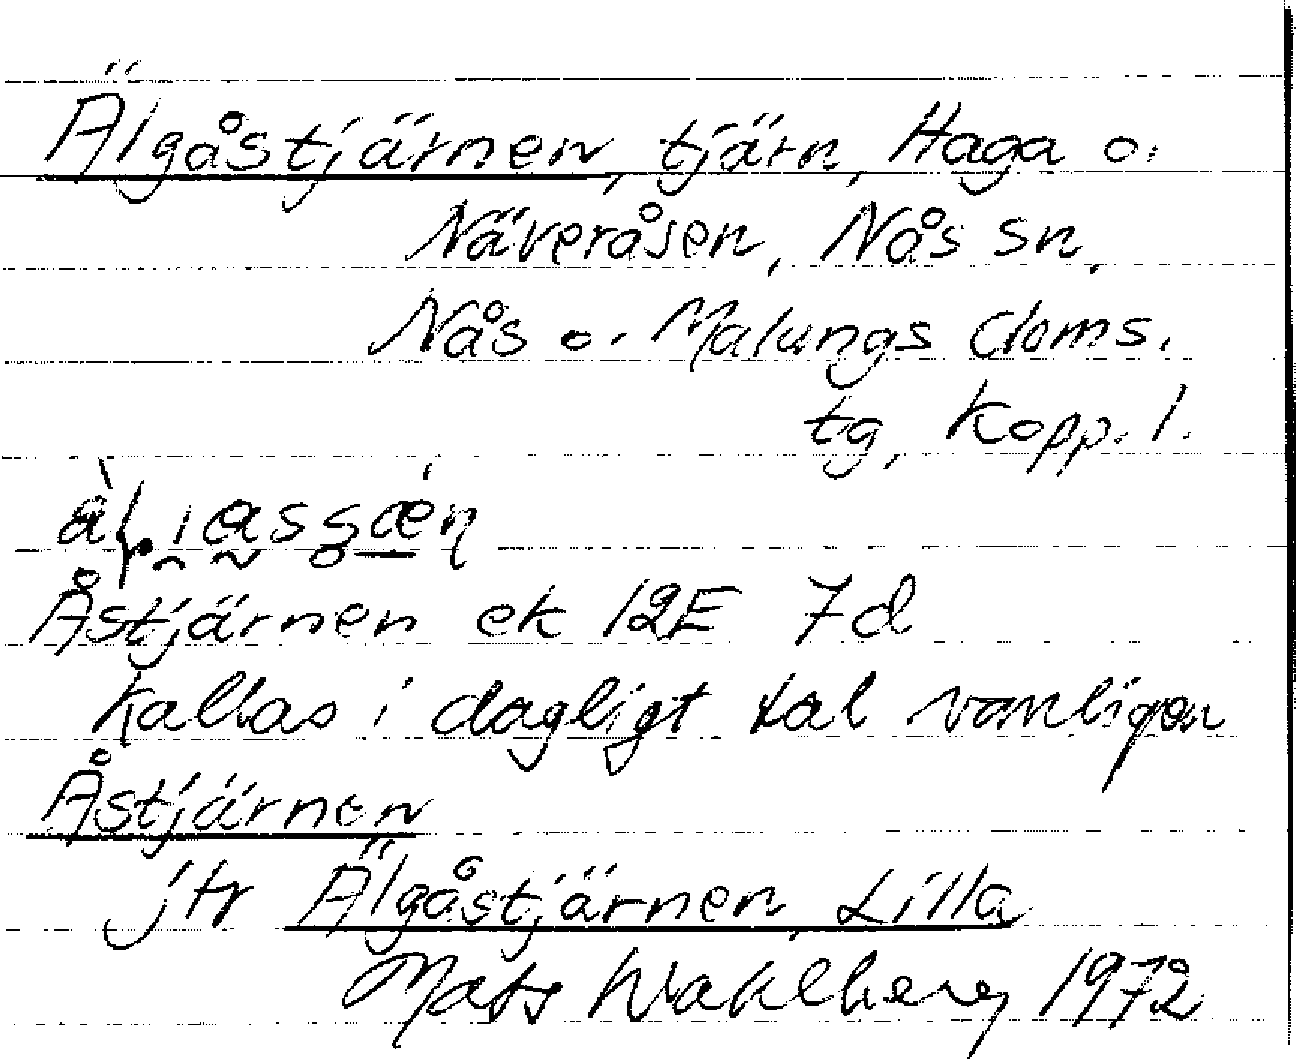 Älgåstjärnen, tjärn, Haga o.
Näveråsen, Nås sn,
Nås o. Malungs doms.
tg, Kopp. l.
Åstjärnen ek 12E 7d
kallas i dagligt tal vanligen
Åstjärnen
jfr Älgåstjärnen, Lilla
Mats Wahlberg 1972